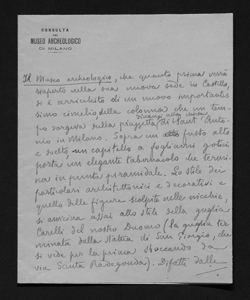 CONSULTA
DEL
MUSEO ARCHEOLOGICO
DI MILANO
Il Museo archeologico, che quanto prima verrà
riaperto nella sua nuova sede in Castello,
si è arricchito di un nuovo importantis
simo cimelio della colonna che un tem
po sorgeva sulla piazzetta di Sant' Anto
nio in Milano. Sopra un fusto alto
e svelto un capitello a fogliami gotici
porta un elegante tabernacolo che termi
na in punta piramidale. Lo stile dei
particolari architettonici e decorativi e
quello delle figure scolpite nelle nicchie,
si avvicina assai allo stile della guglia
Carelli del nostro Duomo (la guglia ter
minata dalla statua di San Giorgio, che
si vede per la prima sboccando da
via Santa Radegonda). Difatti dalle